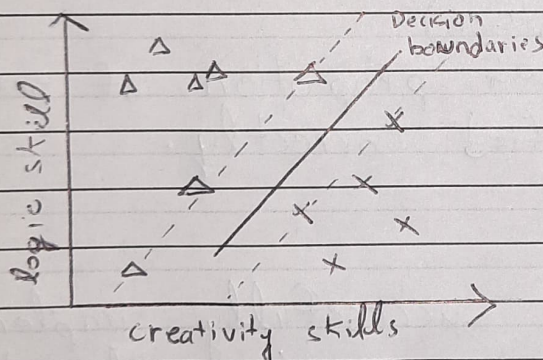 Decision
boundaries
logic skill
creativity skills